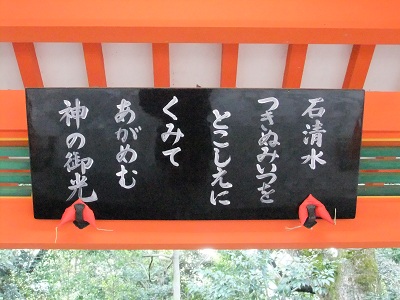 石清水
つきぬみいつを
とこしえに
くみて
あがめむ
神の御光